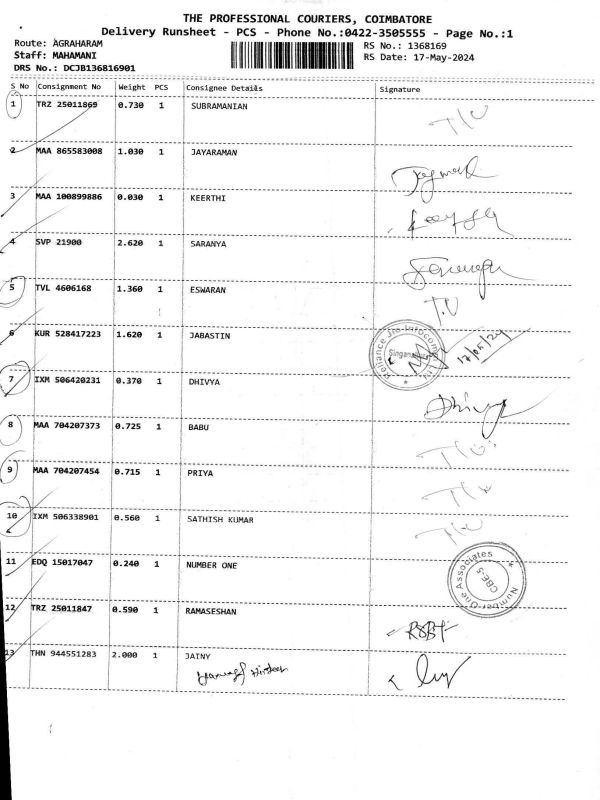 THE PROFESSIONAL COURIERS, COIMBATORE
Delivery Runsheet - PCS - Phone No.:0422-3505555 - Page No.:1
Route: AGRAHARAM
Staff: MAHAMANI
DRS No.: DCJB136816901
RS No.: 1368169
RS Date: 17-May-2024
S No Consignment No Weight PCS Consignee Details Signature
1 TRZ 25011869 0.730 1 SUBRAMANIAN
2 MAA 865583008 1.030 1 JAYARAMAN
3 MAA 100899886 0.030 1 KEERTHI
4 SVP 21900 2.620 1 SARANYA
5 TVL 4606168 1.360 1 ESWARAN
6 KUR 528417223 1.620 1 JABASTIN
Reliance Jio Infocomm Ltd
17/05/24
7 IXM 506420231 0.370 1 DHIVYA Dhivya
8 MAA 704207373 0.725 1 BABU
9 MAA 704207454 0.715 1 PRIYA
10 IXM 506338901 0.560 1 SATHISH KUMAR
11 EDQ 15017047 0.240 1 NUMBER ONE
Number-One Associates
CBE-5
12 TRZ 25011847 0.590 1 RAMASESHAN
13 THN 944551283 2.000 1 JAINY